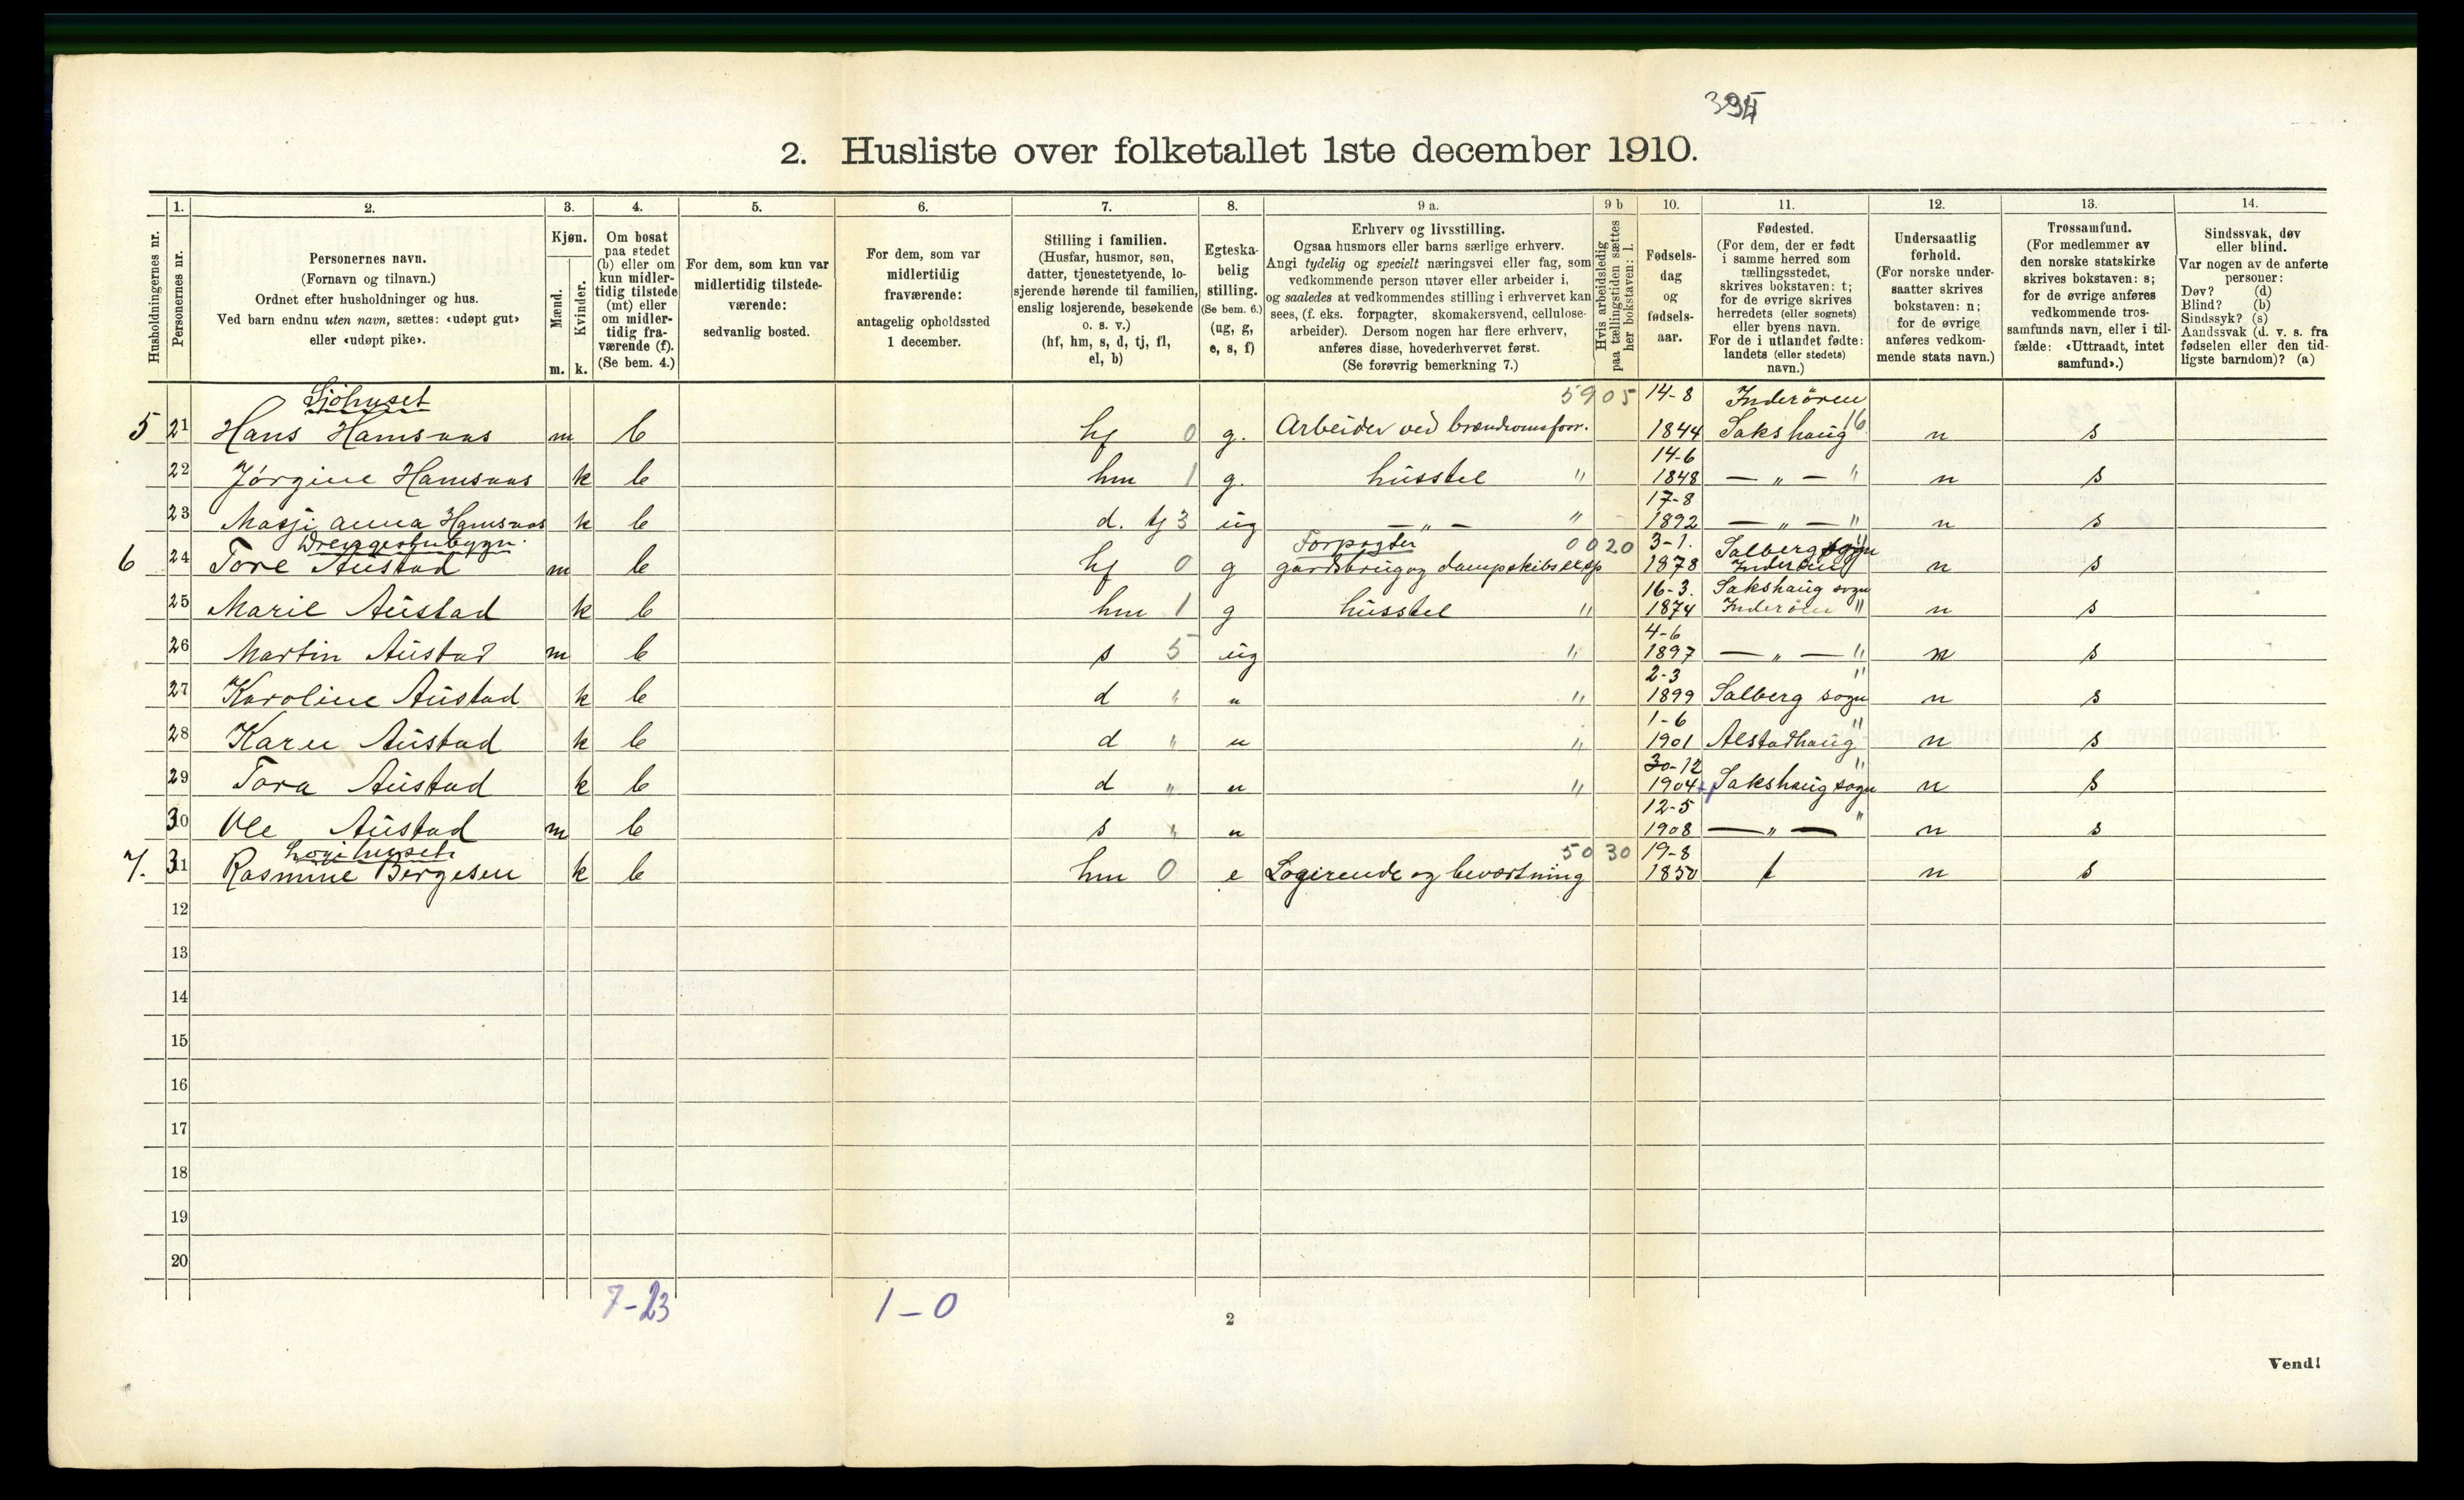 394
2. Husliste over folketallet 1ste december 1910.
Husholdningernes nr.
1.
Personernes nr.
2.
Personernes navn.
(Fornavn og tilnavn.)
Ordnet efter husholdninger og hus.
Ved barn endnu uten navn, sættes: «udøpt gut»
eller «udøpt pike».
3.
Kjøn.
Mænd.
Kvinder.
m. k.
4.
Om bosat
paa stedet
(b) eller om
kun midler-
tidig tilstede
(mt) eller
om midler-
tidig fra-
værende (f).
(Se bem. 4.)
5.
For dem, som kun var
midlertidig tilstede-
værende:
sedvanlig bosted.
6.
For dem, som var
midlertidig
fraværende:
antagelig opholdssted
1 december.
7.
Stilling i familien.
(Husfar, husmor, søn,
datter, tjenestetyende, lo-
sjerende hørende til familien,
enslig losjerende, besøkende
o. s. v.)
(hf, hm, s, d, tj, fl,
el, b)
8.
Egteska-
belig
stilling.
(Se bem. 6.)
(ug, g,
e, s, f)
9 a.
Erhverv og livsstilling.
Ogsaa husmors eller barns særlige erhverv.
Angi tydelig og specielt næringsvei eller fag, som
vedkommende person utøver eller arbeider i,
og saaledes at vedkommendes stilling i erhvervet kan
sees, (f. eks. forpagter, skomakersvend, cellulose-
arbeider). Dersom nogen har flere erhverv,
anføres disse, hovederhvervet først.
(Se forøvrig bemerkning 7.)
9 b
Hvis arbeidsledig
paa tællingstiden sættes
her bokstaven: l.
10.
Fødsels-
dag
og
fødsels-
aar.
11.
Fødested.
(For dem, der er født
i samme herred som
tællingsstedet,
skrives bokstaven: t;
for de øvrige skrives
herredets (eller sognets)
eller byens navn.
For de i utlandet fødte:
landets (eller stedets)
navn.)
12.
Undersaatlig
forhold.
(For norske under-
saatter skrives
bokstaven: n;
for de øvrige
anføres vedkom-
mende stats navn.)
13.
Trossamfund.
(For medlemmer av
den norske statskirke
skrives bokstaven: s;
for de øvrige anføres
vedkommende tros-
samfunds navn, eller i til-
fælde: «Uttraadt, intet
samfund».)
14.
Sindssvak, døv
eller blind.
Var nogen av de anførte
personer:
Døv? (d)
Blind? (b)
Sindssyk? (s)
Aandssvak (d. v. s. fra
fødselen eller den tid-
ligste barndom)? (a)
Sjøhuset 5905 14-8 Inderøren
5 21 Hans Hamsaas m b hf 0 g. Arbeider ved 1844 Sakshaug 16 n s
14-6
22 Jørgine Hamsaas k b hm 1 g. husstel " 1848 — " — " n s
17-8
23 Anna Hamsaas k b d. tj 3 ug — " — " 1892 — " — " n s
Forpagter 0020 3-1. Salberg sogn
6 24 Tore Austad m b hf 0 g gardsbrug og dampskibseksp 1878 Inderøen n s
16-3. Sakshaug sogn
25 Marie Austad k b hm 1 g husstel " 1874 Inderøen " n s
4-6
26 Martin Austad m b s 5 ug " 1897 — " — " n s
2-3 "
27 Karoline Austad k b d " u " 1899 Salberg sogn n s
1-6 "
28 Karen Austad k b d " u " 1901 Alstadhaug n s
30-12 "
29 Tora Austad k b d " u " 1904 Sakshaug sogn n s
12-5 "
30 Ole Austad m b s " u 1908 — " — n s
Losjihuset. 5030 19-8
7. 31 Rasmine Bergesen k b hm 0 e Logirende og beværtning 1850 t n s
12
13
14
15
16
17
18
19
20
7-23 1-0
2
Vend!